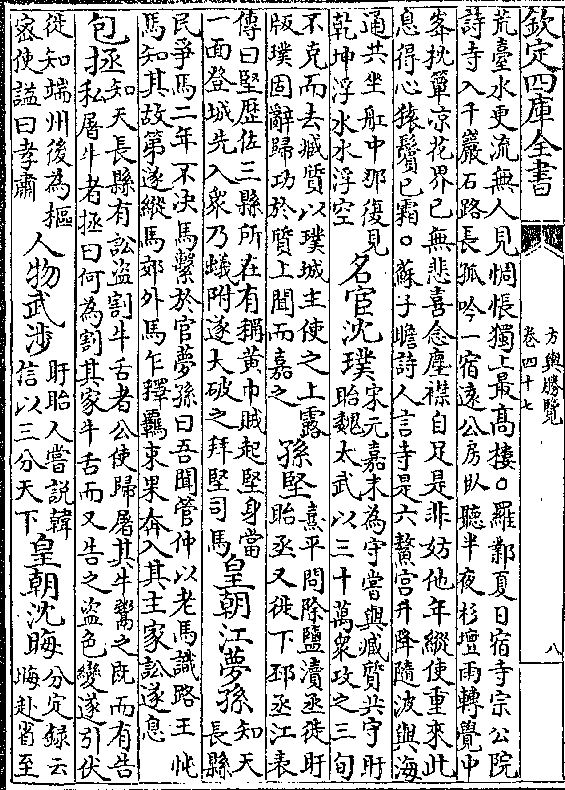 欽定四庫全書
方輿勝覽
卷四十七
八
荒臺水更流無人見惆悵獨上最髙樓○羅鄴夏日宿寺宗公院
詩寺入千巖石路長孤吟一宿遠公房卧聽半夜杉壇雨轉覺中
峯枕簟凉花界已無悲喜念塵襟自足是非妨他年縱使重來此
息得心猿鬢已霜○蘇子瞻詩人言寺是六鰲宫升降隨波與海
通共坐舡中那復見
乾坤浮水水浮空
名宦沈璞
宋元嘉末為守嘗與臧質共守盱
眙魏太武以三十萬衆攻之三旬
不克而去臧質以璞城主使之上露
版璞固辭歸功於質上聞而嘉之
孫堅
熹平間除鹽瀆丞徙盱
眙丞又徙下邳丞江表
傳曰堅歴佐三縣所在有稱黄巾賊起堅身當
一面登城先入衆乃蟻附遂大破之拜堅司馬
皇朝江夢孫
知天
長縣
民爭馬二年不決馬繫於官夢孫曰吾聞管仲以老馬識路王忱
馬知其故第遂縱馬郊外馬乍釋羈束果奔入其主家訟遂息
包拯
知天長縣有訟盜割牛舌者公使歸屠其牛鬻之既而有告
私屠牛者拯曰何為割其家牛舌而又告之盜色變遂引伏
徙知端州後為樞
密使謚曰孝肅
人物武涉
盱眙人嘗説韓
信以三分天下
皇朝沈晦
分定錄云
晦赴省至